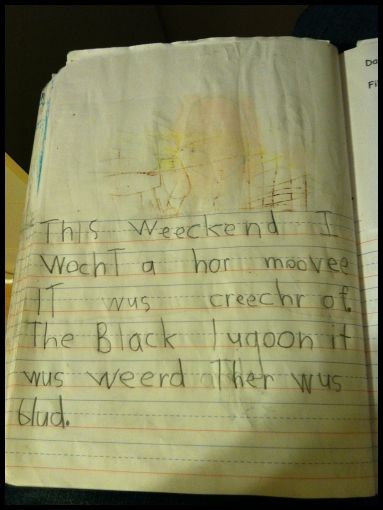 Da
Fi
This Weeckend I
wocht a hor moovee
IT wus creechr of
The Black lugoon it
wus weerd Ther wus
blud.